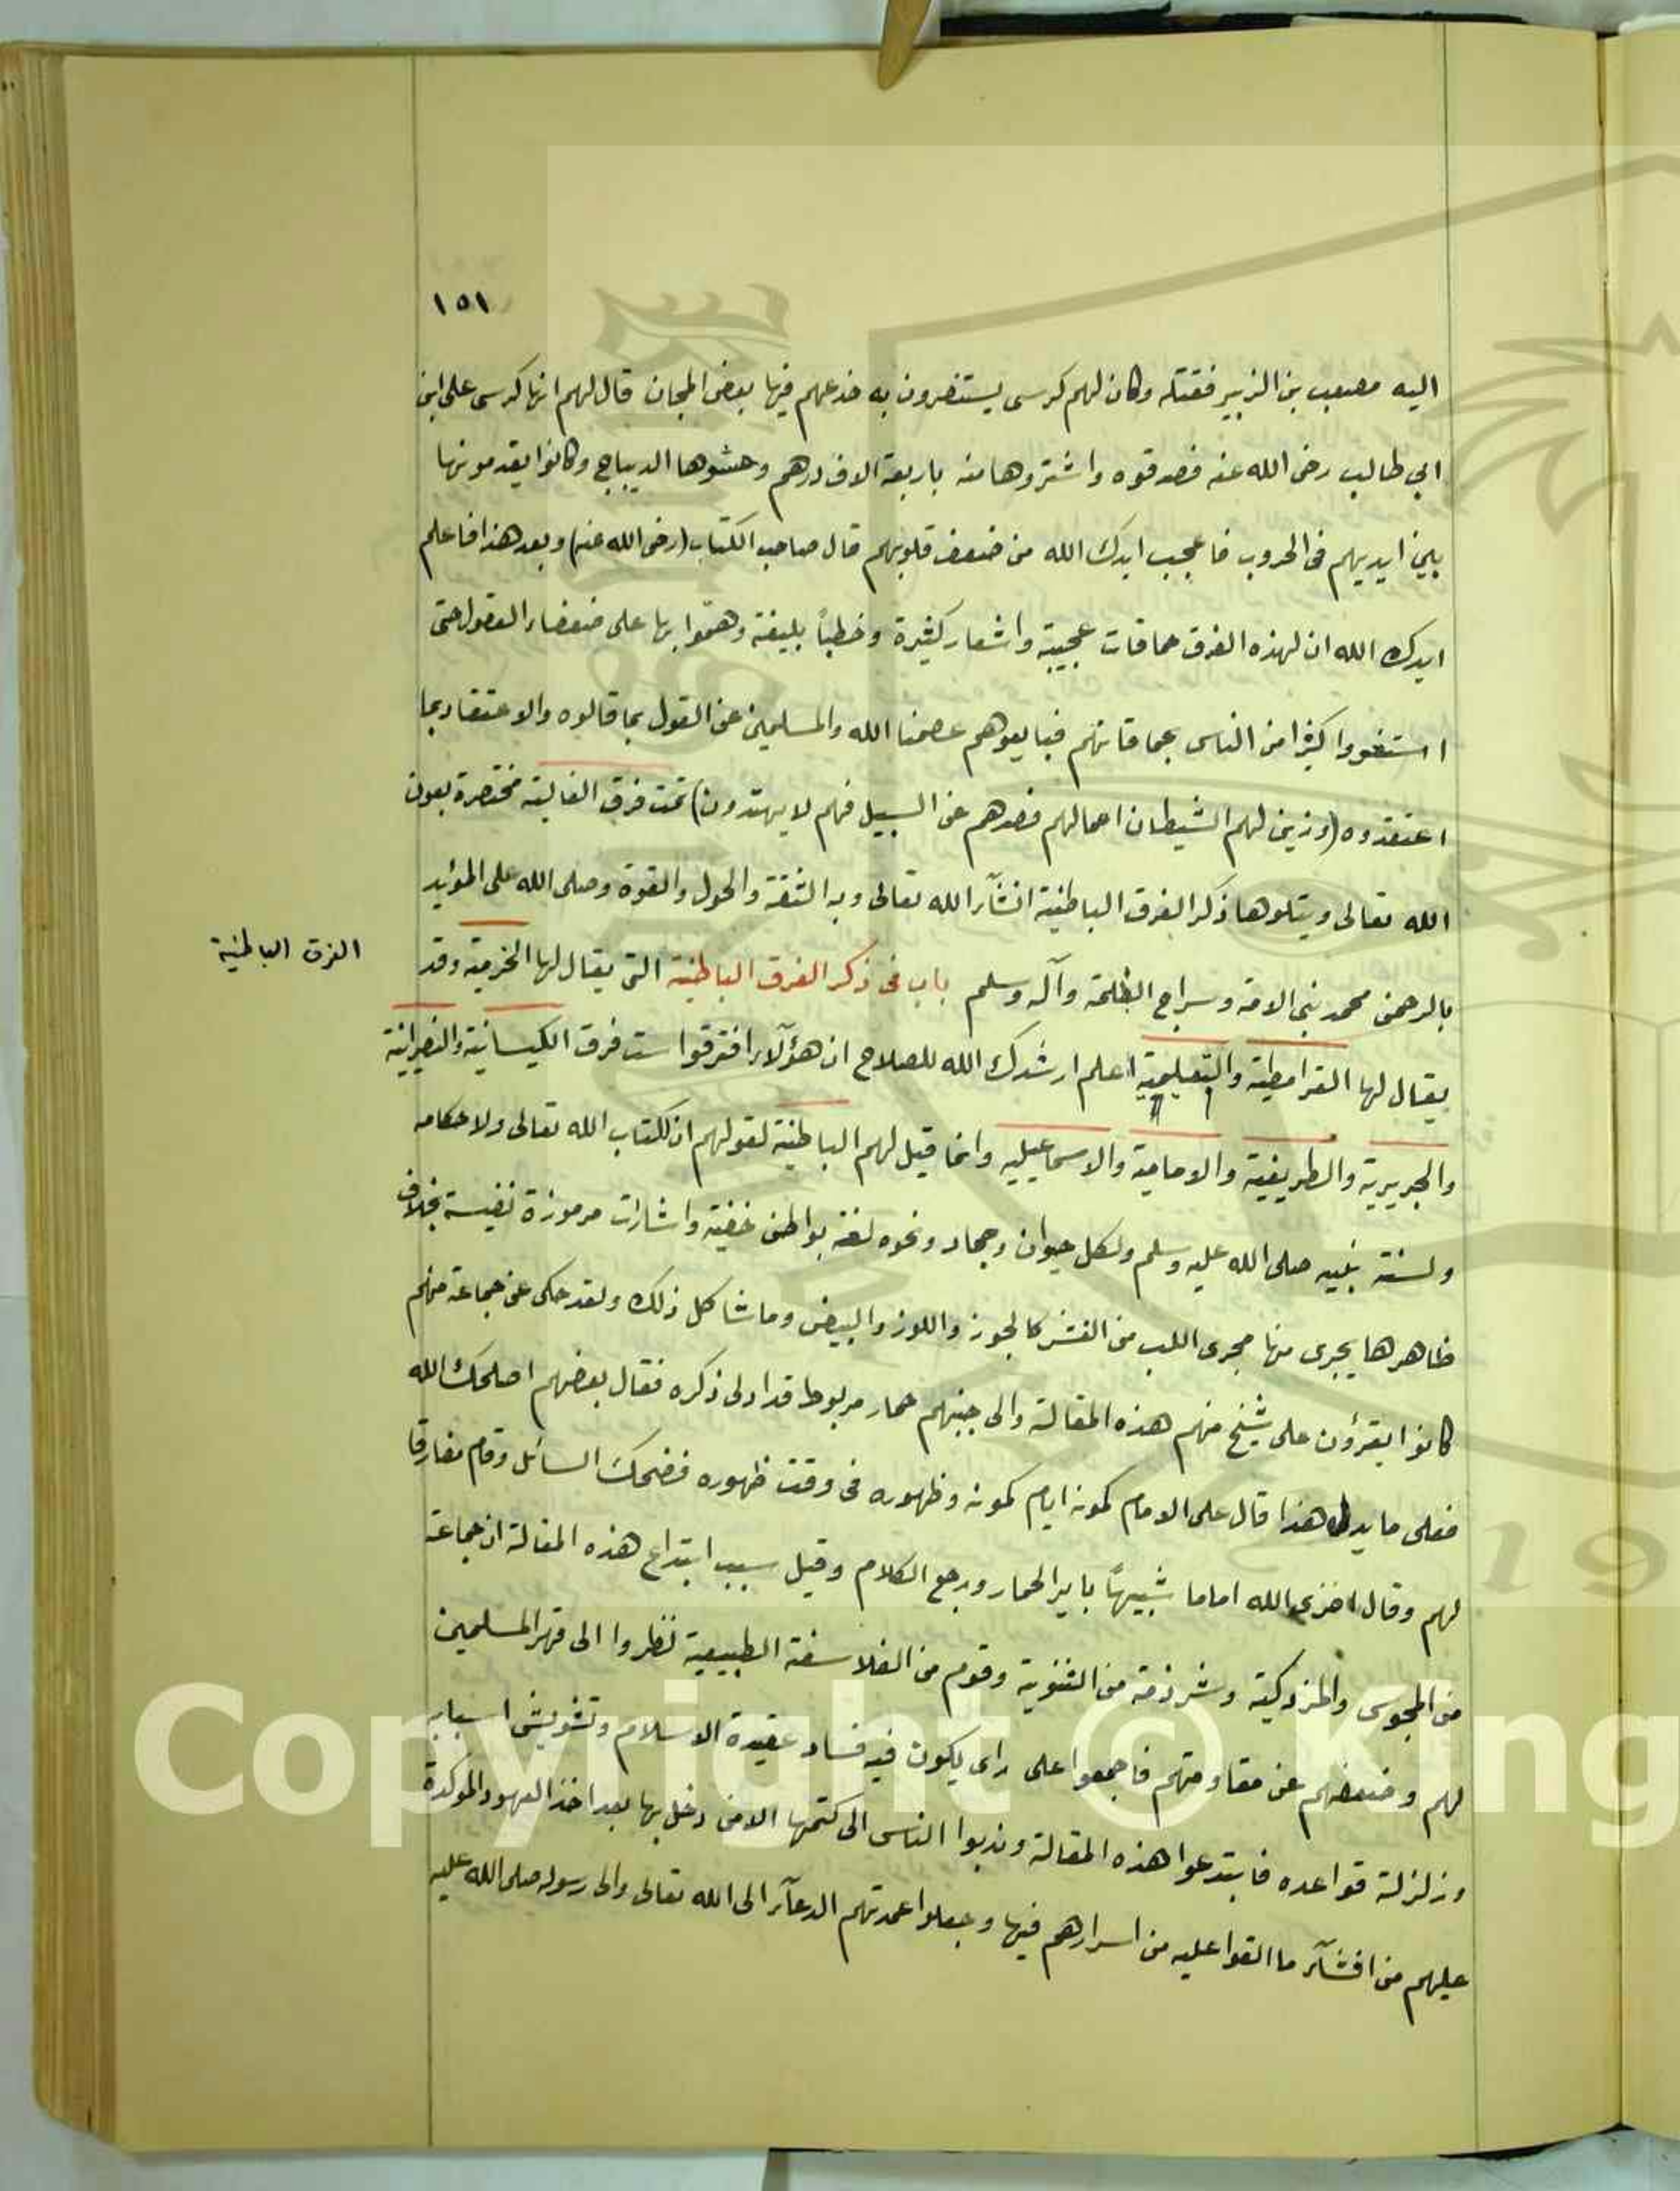 ١٥١
اليه مصعب بن الزبير فقتله وكان لهم كرسى يستنصرون به خدعهم فيها بعض المجان قال لهم انها كرسى على ابن
ابي طالب رضى الله عنه فصدقوه واشتروها منه باربعة الاف درهم وحشوها الديباج وكانوا يقدمونها
بين ايديهم فى الحروب فاعجب ايدك الله من ضعف قلوبهم قال صاحب الكتاب (رضى الله عنه) وبعد هذا فاعلم
ايدك الله ان لهذه الفرق حماقات عجيبة واشعار كثيرة وخطباً بليغة وهموا بها على ضعفاء العقول حتى
استغووا كثيرا من الناس بحماقاتهم فبايعوهم عصمنا الله والمسلمين عن القول بما قالوه والاعتقاد بما
اعتقدوه (وزين لهم الشيطان اعمالهم فصدهم عن السبيل فهم لا يهتدون) تمت فرق الغالية مختصرة بعون
الله تعالى ويتلوها ذكر الفرق الباطنية انشآء الله تعالى وبه الثقة والحول والقوة وصلى الله على المؤيد
بالرحمن محمد نبى الامة وسراج الظلمة وآله وسلم باب فى ذكر الفرق الباطنية التى يقال لها الخرمية وقد
الفرق الباطنية
يقال لها القرامطية والتعليمية اعلم ارشدك الله للصلاح ان هؤلآء افترقوا ست فرق الكيسانية والنصرانية
والجريرية والطريفية والامامية والاسماعيليه وانما قيل لهم الباطنية لقولهم ان لكتاب الله تعالى ولاحكامه
ولسنة نبيه صلى الله عليه وسلم ولكل حيوان وجماد ونحوه لغة بواطن خفية واشارات مرموزة نفيسة بخلاف
ظاهرها يجرى منها مجرى اللب من القشر كالجوز واللوز والبيض وما شاكل ذلك ولقد حكى عن جماعة منهم
كانوا يقرؤن على شيخ منهم هذه المقالة والى جنبهم حمار مربوط قد ادلى ذكره فقال بعضهم اصلحك الله
فعلى ما يدل هذا قال على الامام كمونه ايام كمونه وظهوره فى وقت ظهوره فضحك السائل وقام مفارقا
لهم وقال اخزى الله اماما شبيهاً باير الحمار ورجع الكلام وقيل سبب ابتداع هذه المقالة ان جماعة
من المجوس والمزدكية وشرذمة من الثنوية وقوم من الفلاسفة الطبيعية نظروا الى قهر المسلمين
لهم وضعفهم عن مقاومتهم فاجمعوا على راى يكون فيه فساد عقيدة الاسلام وتشويش اسبابه
وزلزلة قواعده فابتدعوا هذه المقالة وندبوا الناس الى كتمها الا من دخل بها بعد اخذ العهود الموكدة
عليهم من افشآء ما القوا عليه من اسرارهم فيها وجعلوا عمدتهم الدعآء الى الله تعالى والى رسوله صلى الله عليه
Copyright © King
19